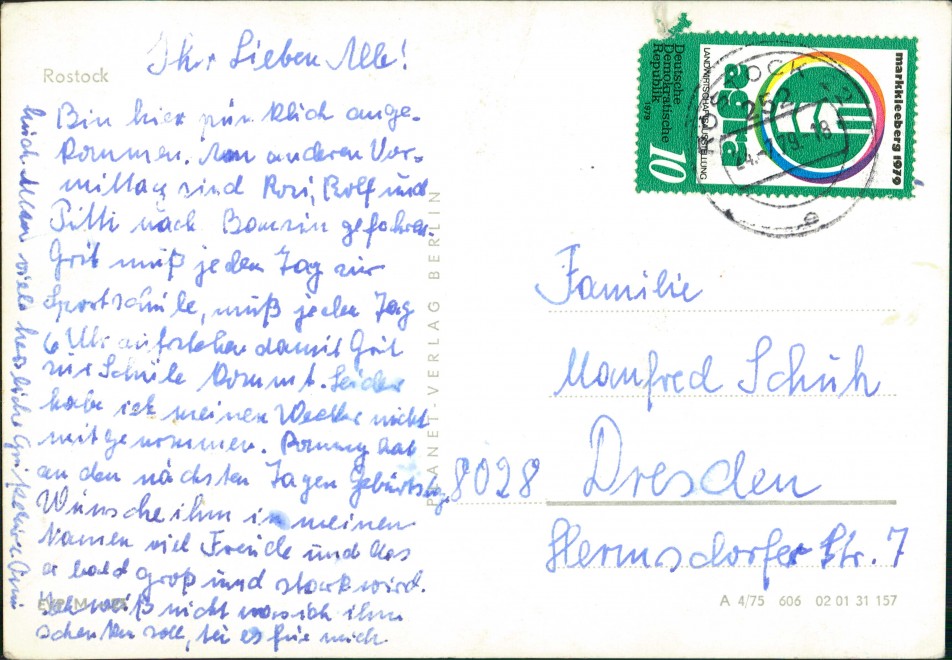 Rostock
Ihr Lieben Alle!
Bin hier pünklich ange-
kommen. Am anderen Vor-
mittag sind Rosi, Rolf und
Pitti nach Bansin gefahren.
Grit muß jeden Tag zur
Sportschule, muß jeden Tag
6 Uhr aufstehen damit Grit
zur Schule kommt. Leider
habe ich meinen Wecker nicht
mitgenommen. Ronny hat
an den nächsten Tagen Geburtstg.
Wünsche ihm in meinen
Namen viel Freude und das
er bald groß und stark wird.
Ich weiß nicht was ich ihm
schenken soll, tu es für mich.
Euch Allen viele herzliche Grüße
PLANET-VERLAG BERLIN
Deutsche
Demokratische
Republik
1979
10
LANDWIRTSCHAFTSAUSSTELLUNG
agra
markkleeberg 1979
ROSTOCK
252
24.-7.79.-18
e
Familie
Manfred Schuh
8028 Dresden
Hermsdorfer Str. 7
A 4/75 606 02 01 31 157